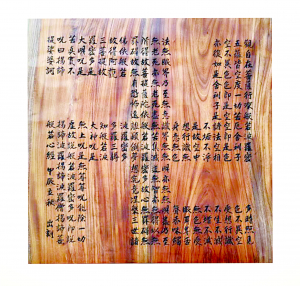 觀自在菩薩行深般若波羅蜜多時照見
五蘊皆空度一切苦厄舍利子色不異空
空不異色色即是空空即是色受想行識
亦復如是舍利子是諸法空相不生不滅
不垢不淨不增不減
是故空中無色無受
想行識無眼耳鼻舌
身意無色聲香味觸
法無眼界乃至無意識界無無明亦無無明盡乃至
無老死亦無老死盡無苦集滅道無智亦無得以無
所得故菩提薩埵依般若波羅蜜多故心無罣礙無
罣礙故無有恐怖遠離顛倒夢想究竟涅槃三世諸
佛依般若波羅蜜多
故得阿耨多羅
三藐三菩提故
知般若波羅蜜多是
大神咒是
大明咒是
無上咒是無等等咒能除一切
苦真實不虛故說般若波羅蜜多咒即說
咒曰揭諦揭諦波羅揭諦波羅僧揭諦菩
提薩婆訶
般若心經 甲辰立秋